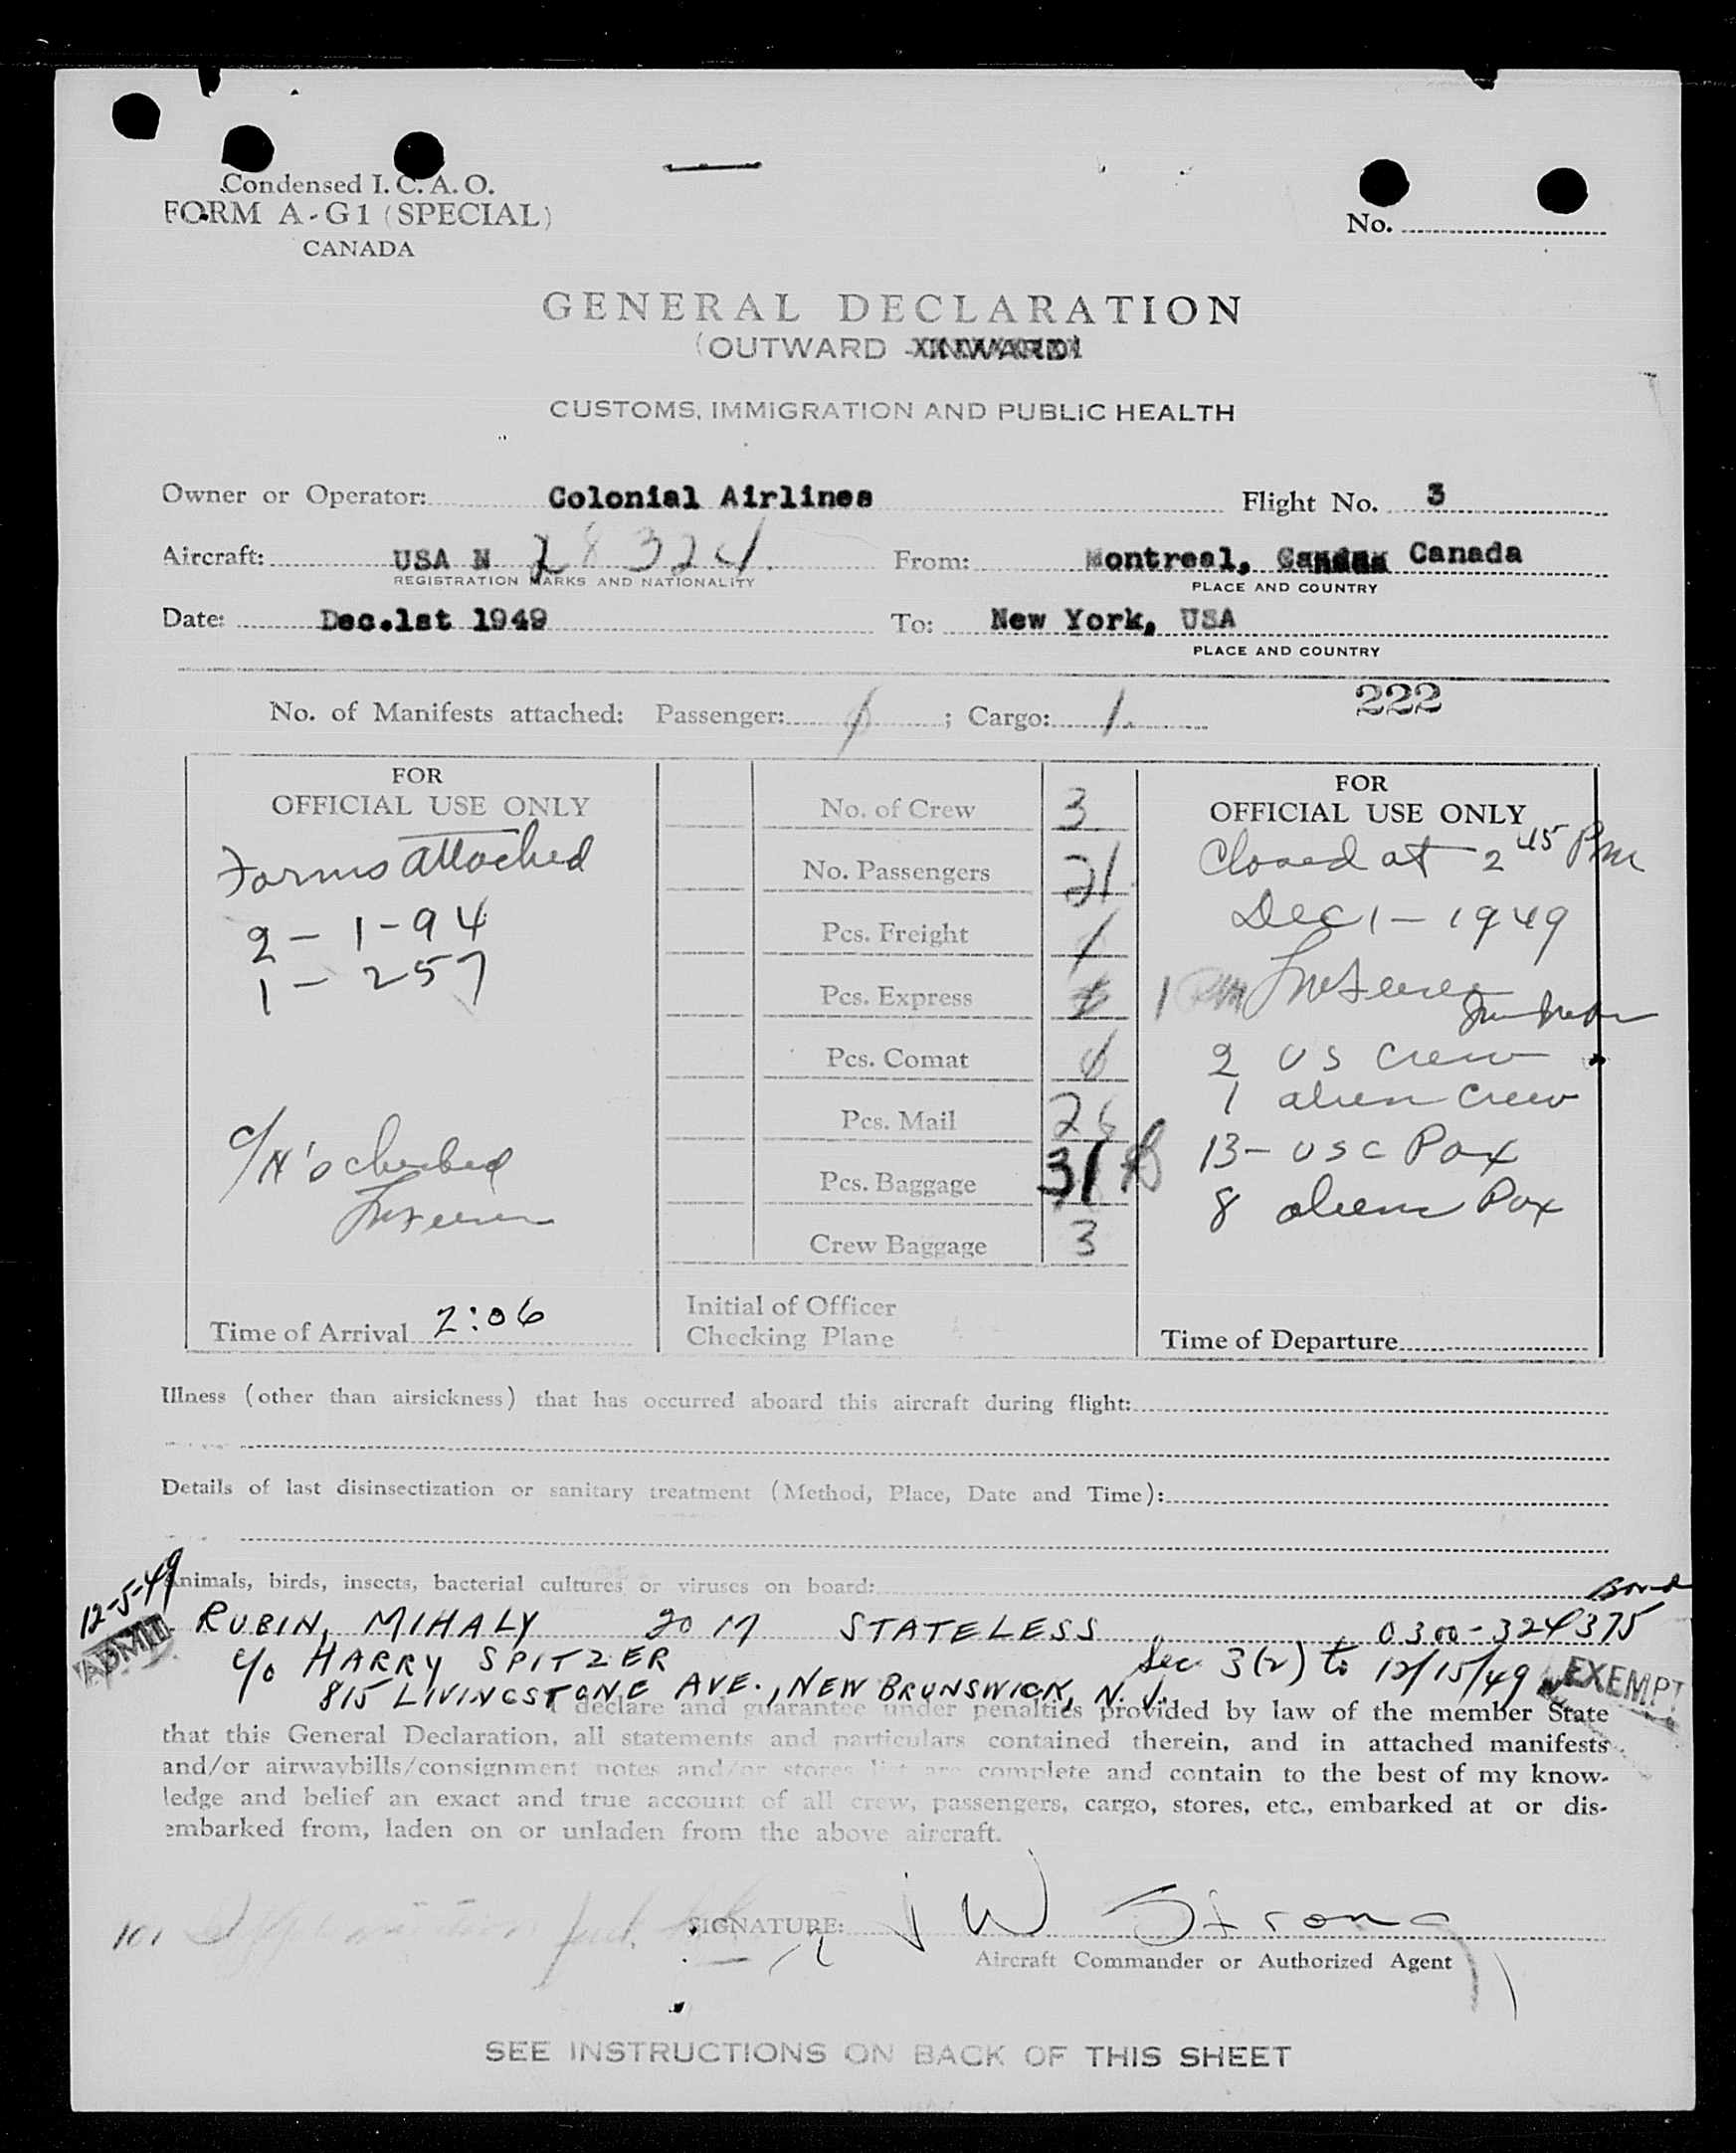 Condensed I. C. A. O.
FORM A-G1 (SPECIAL)
CANADA
No.
GENERAL DECLARATION
(OUTWARD
CUSTOMS, IMMIGRATION AND PUBLIC HEALTH
Owner or Operator: Colonial Airlines Flight No. 3
Aircraft: USA N 28324 From: Montreal, Canada
REGISTRATION MARKS AND NATIONALITY PLACE AND COUNTRY
Date: Dec.1st 1949 To: New York, USA
PLACE AND COUNTRY
222
No. of Manifests attached: Passenger: ; Cargo: 1
FOR
OFFICIAL USE ONLY
Forms attached
2 - 1-94
1 - 257
c/H's checked
Time of Arrival 2:06
No. of Crew 3
No. Passengers 21
Pcs. Freight
Pcs. Express
Pcs. Comat
Pcs. Mail 26
Pcs. Baggage 31
Crew Baggage 3
Initial of Officer
Checking Plane
FOR
OFFICIAL USE ONLY
Closed at 2 45 Pm
Dec 1 - 1949
2 US Crew
1 alien Crew
13 - USC Pax
8 alien Pax
Time of Departure
Illness (other than airsickness) that has occurred aboard this aircraft during flight:
Details of last disinsectization or sanitary treatment (Method, Place, Date and Time):
Animals, birds, insects, bacterial cultures or viruses on board:
12-5-49
ADMIT
Bond
RUBIN, MIHALY 20 M STATELESS 0300-324375
c/o HARRY SPITZER Sec 3(2) to 12/15/49 EXEMPT
815 LIVINGSTONE AVE., NEW BRUNSWICK, N. J.
I declare and guarantee under penalties provided by law of the member State
that this General Declaration, all statements and particulars contained therein, and in attached manifests
and/or airwaybills/consignment notes and/or stores list are complete and contain to the best of my know-
ledge and belief an exact and true account of all crew, passengers, cargo, stores, etc., embarked at or dis-
embarked from, laden on or unladen from the above aircraft.
SIGNATURE: J W Strong
Aircraft Commander or Authorized Agent
SEE INSTRUCTIONS ON BACK OF THIS SHEET